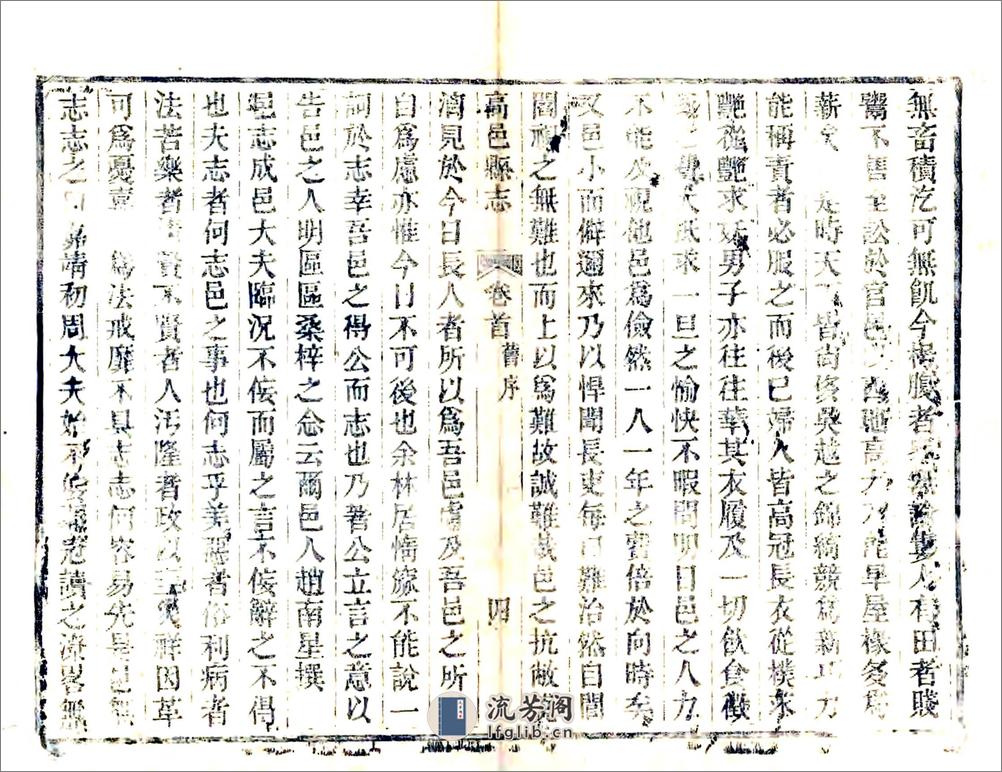 無畜積汔可無飢今無
鬻不售至訟於官邑
薪 是時天下皆尚侈吳越之錦綺競為新巧力
能稱責者必服之而後已婦人皆高冠長衣從樸求
艷從艷求妖男子亦往往華其衣履及一切飲食徵
大抵求一旦之愉快不暇問明日邑之人力
不能及視他邑為儉然一人一年之費倍於向時矣
又邑小而僻邇來乃以悍聞長吏每曰難治然自閭
閻視之無難也而上以為難故誠難哉邑之抗敝
高邑縣志 卷首 舊序 四
濟見於今日長人者所以為吾邑慮及吾邑之所
自為慮亦惟今日不可後也余林居慵緣不能說一
詞於志幸吾邑之得公而志也乃著公立言之意以
告邑之人明區區桑梓之念云爾邑人趙南星撰
邑志成邑大夫臨況不佞而屬之言不佞辭之不得
也夫志者何志邑之事也何志乎美惡者俗利病者
法苦樂者 賢不賢者人汙隆者政以至災祥因革
可為憂喜 為法戒靡不具志志何容易先是邑無
志志之自 靖初周大夫始不佞 讀之